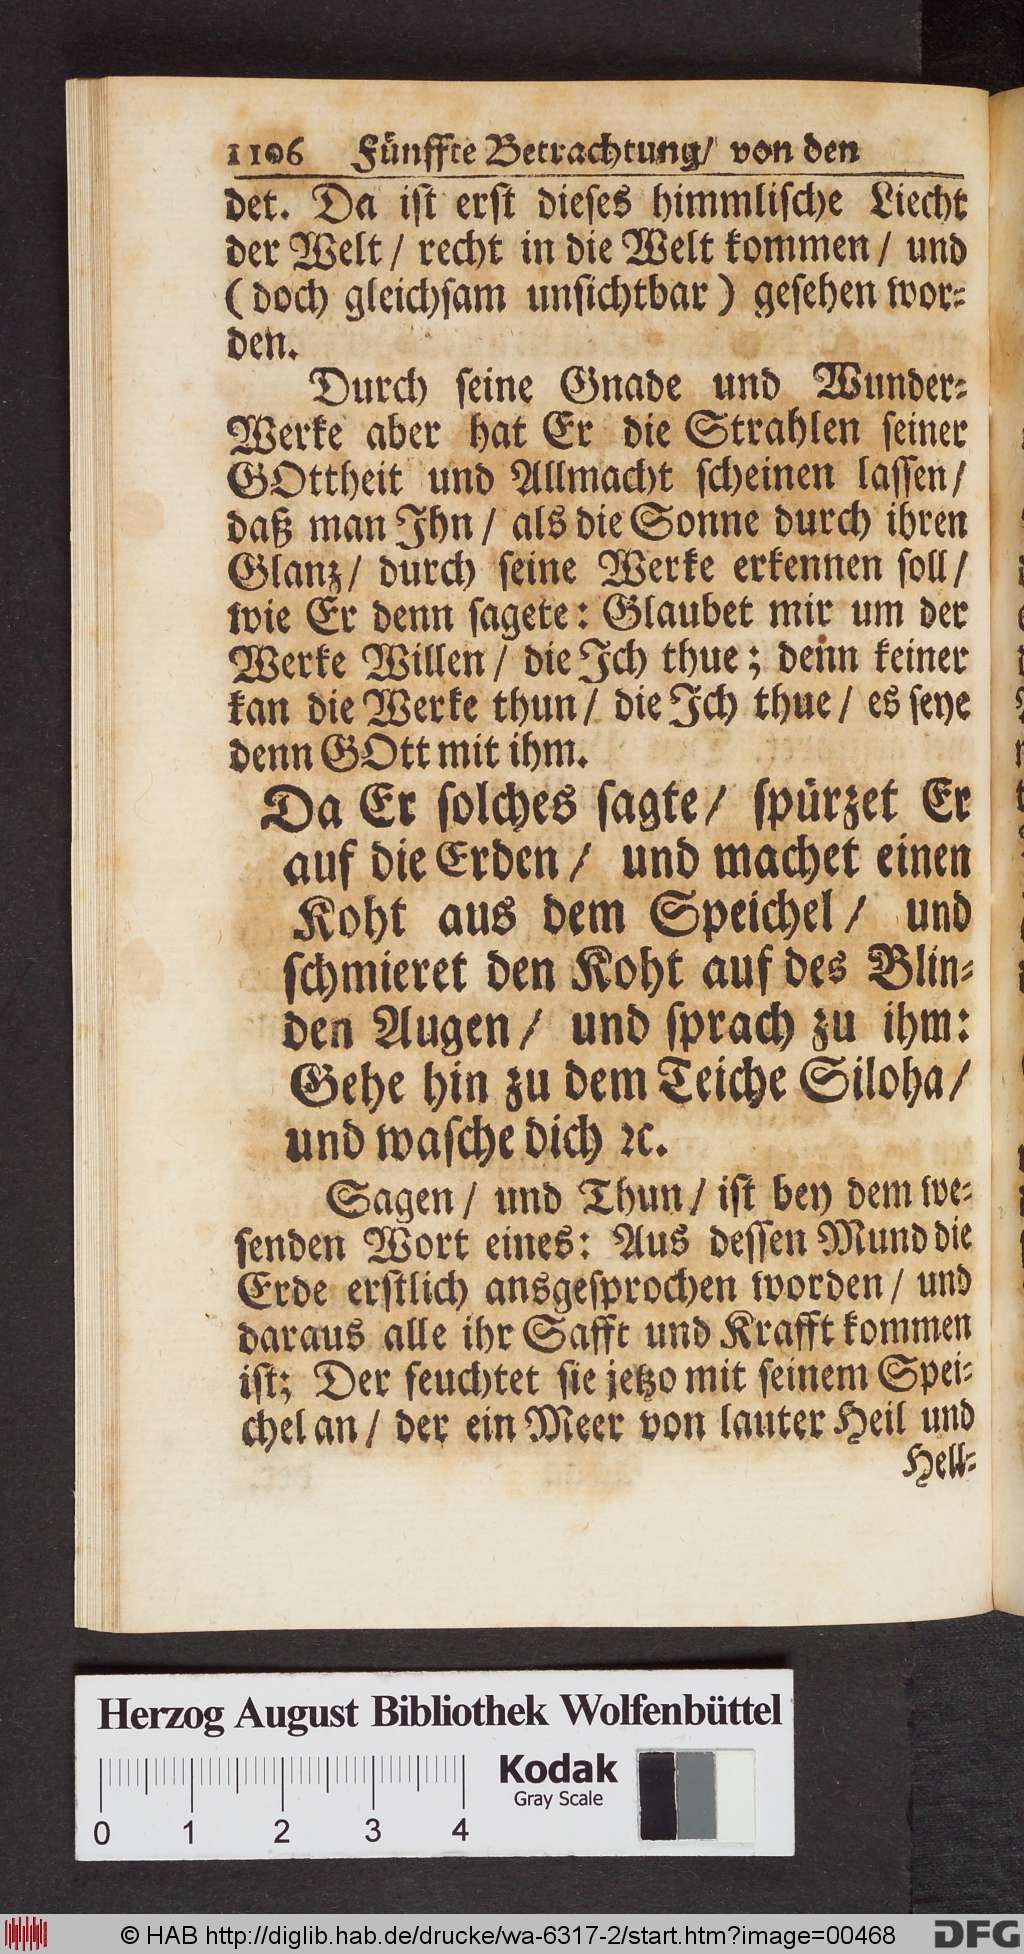 1106 Fünffte Betrachtung/ von den
det. Da ist erst dieses himmlische Liecht
der Welt / recht in die Welt kommen / und
(doch gleichsam unsichtbar) gesehen wor-
den.
Durch seine Gnade und Wunder-
Werke aber hat Er die Strahlen seiner
GOttheit und Allmacht scheinen lassen/
daß man Ihn / als die Sonne durch ihren
Glanz/ durch seine Werke erkennen soll/
wie Er denn sagete: Glaubet mir um der
Werke Willen / die Ich thue; denn keiner
kan die Werke thun/ die Ich thue / es seye
denn GOtt mit ihm.
Da Er solches sagte/ spürzet Er
auf die Erden / und machet einen
Koht aus dem Speichel / und
schmieret den Koht auf des Blin-
den Augen / und sprach zu ihm:
Gehe hin zu dem Teiche Siloha/
und wasche dich ꝛc.
Sagen / und Thun / ist bey dem we-
senden Wort eines: Aus dessen Mund die
Erde erstlich ansgesprochen worden / und
daraus alle ihr Safft und Krafft kommen
ist; Der feuchtet sie jetzo mit seinem Spei-
chel an / der ein Meer von lauter Heil und
Hell-
Herzog August Bibliothek Wolfenbüttel
Kodak
Gray Scale
0 1 2 3 4
© HAB http://diglib.hab.de/drucke/wa-6317-2/start.htm?image=00468
DFG